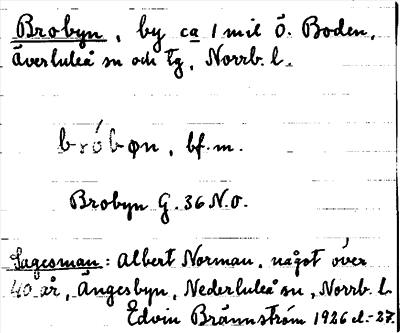 Brobyn, by ca 1 mil Ö. Boden,
Överluleå sn och tg, Norrb. l.
bróbøn, bf. m.
Brobyn G. 36 N.O.
Sagesman: Albert Norman, något över
40 år, Ängesbyn, Nederluleå sn, Norrb. l.
Edvin Brännström 1926 el. -27.